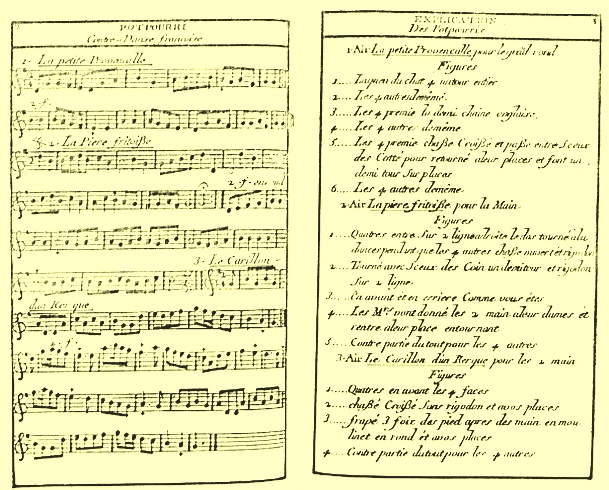 POTPOURRI
Contre-Danse francoise
1- La petite Provencalle
2 f.
2- La Piere fritoiße
2 f. on ml
3- Le Carillon -
dun Ker que
2 f.
EXPLICATION
Des Potpourris
1 Air La petite Provencalle pour le grand rond
Figures
1.... La queu du chat 4 autour entier
2.... Les 4 autres demême
3.... Les 4 premie la demi chaine anglaise
4.... Les 4 autres demême
5.... Les 4 premie chaße Croißé et paße entre Sceux
des Cotté pour retourné aleur places et font un
demi tour Sur places
6.... Les 4 autres demême
2 Air La piere fritoiße pour la Main
Figures
1.... Quatres entre Sur 2 ligne le dos tourné
que les 4 autres chaße
2.... Tourné avec Sceux des Coin un demi tour et rigodon
Sur 2 ligne
3.... En avant et en arriere Comme vous êtes
4.... Les Mrs vont donné les 2 main aleur dames et
rentre aleur place en tournant
5.... Contre partie du tout pour les 4 autres
3 Air Le Carillon dun Kerque pour les 2 main
Figures
1.... Quatres en avant les 4 faces
2.... chaßé Croißé Sans rigodon et avos places
3.... frapé 3 fois des pied apres des main en mou
linet en rond et avos places
4.... Contre partie du tout pour les 4 autres